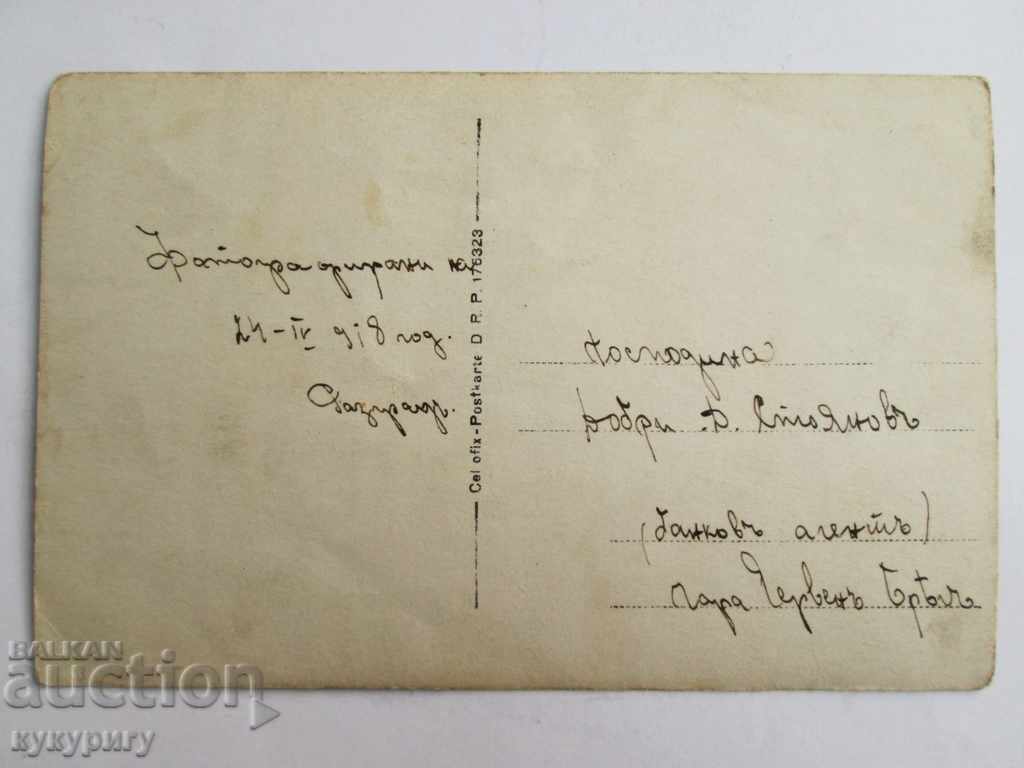 Фотографирани на
24-IV 918 год.
Разградъ.
Cel ofix-Postkarte D. R. P. 176323
Господина
Добри Д. Стояновъ
(банковъ агентъ)
гара Червенъ Брѣгъ
BALKAN
auction
кукуригу